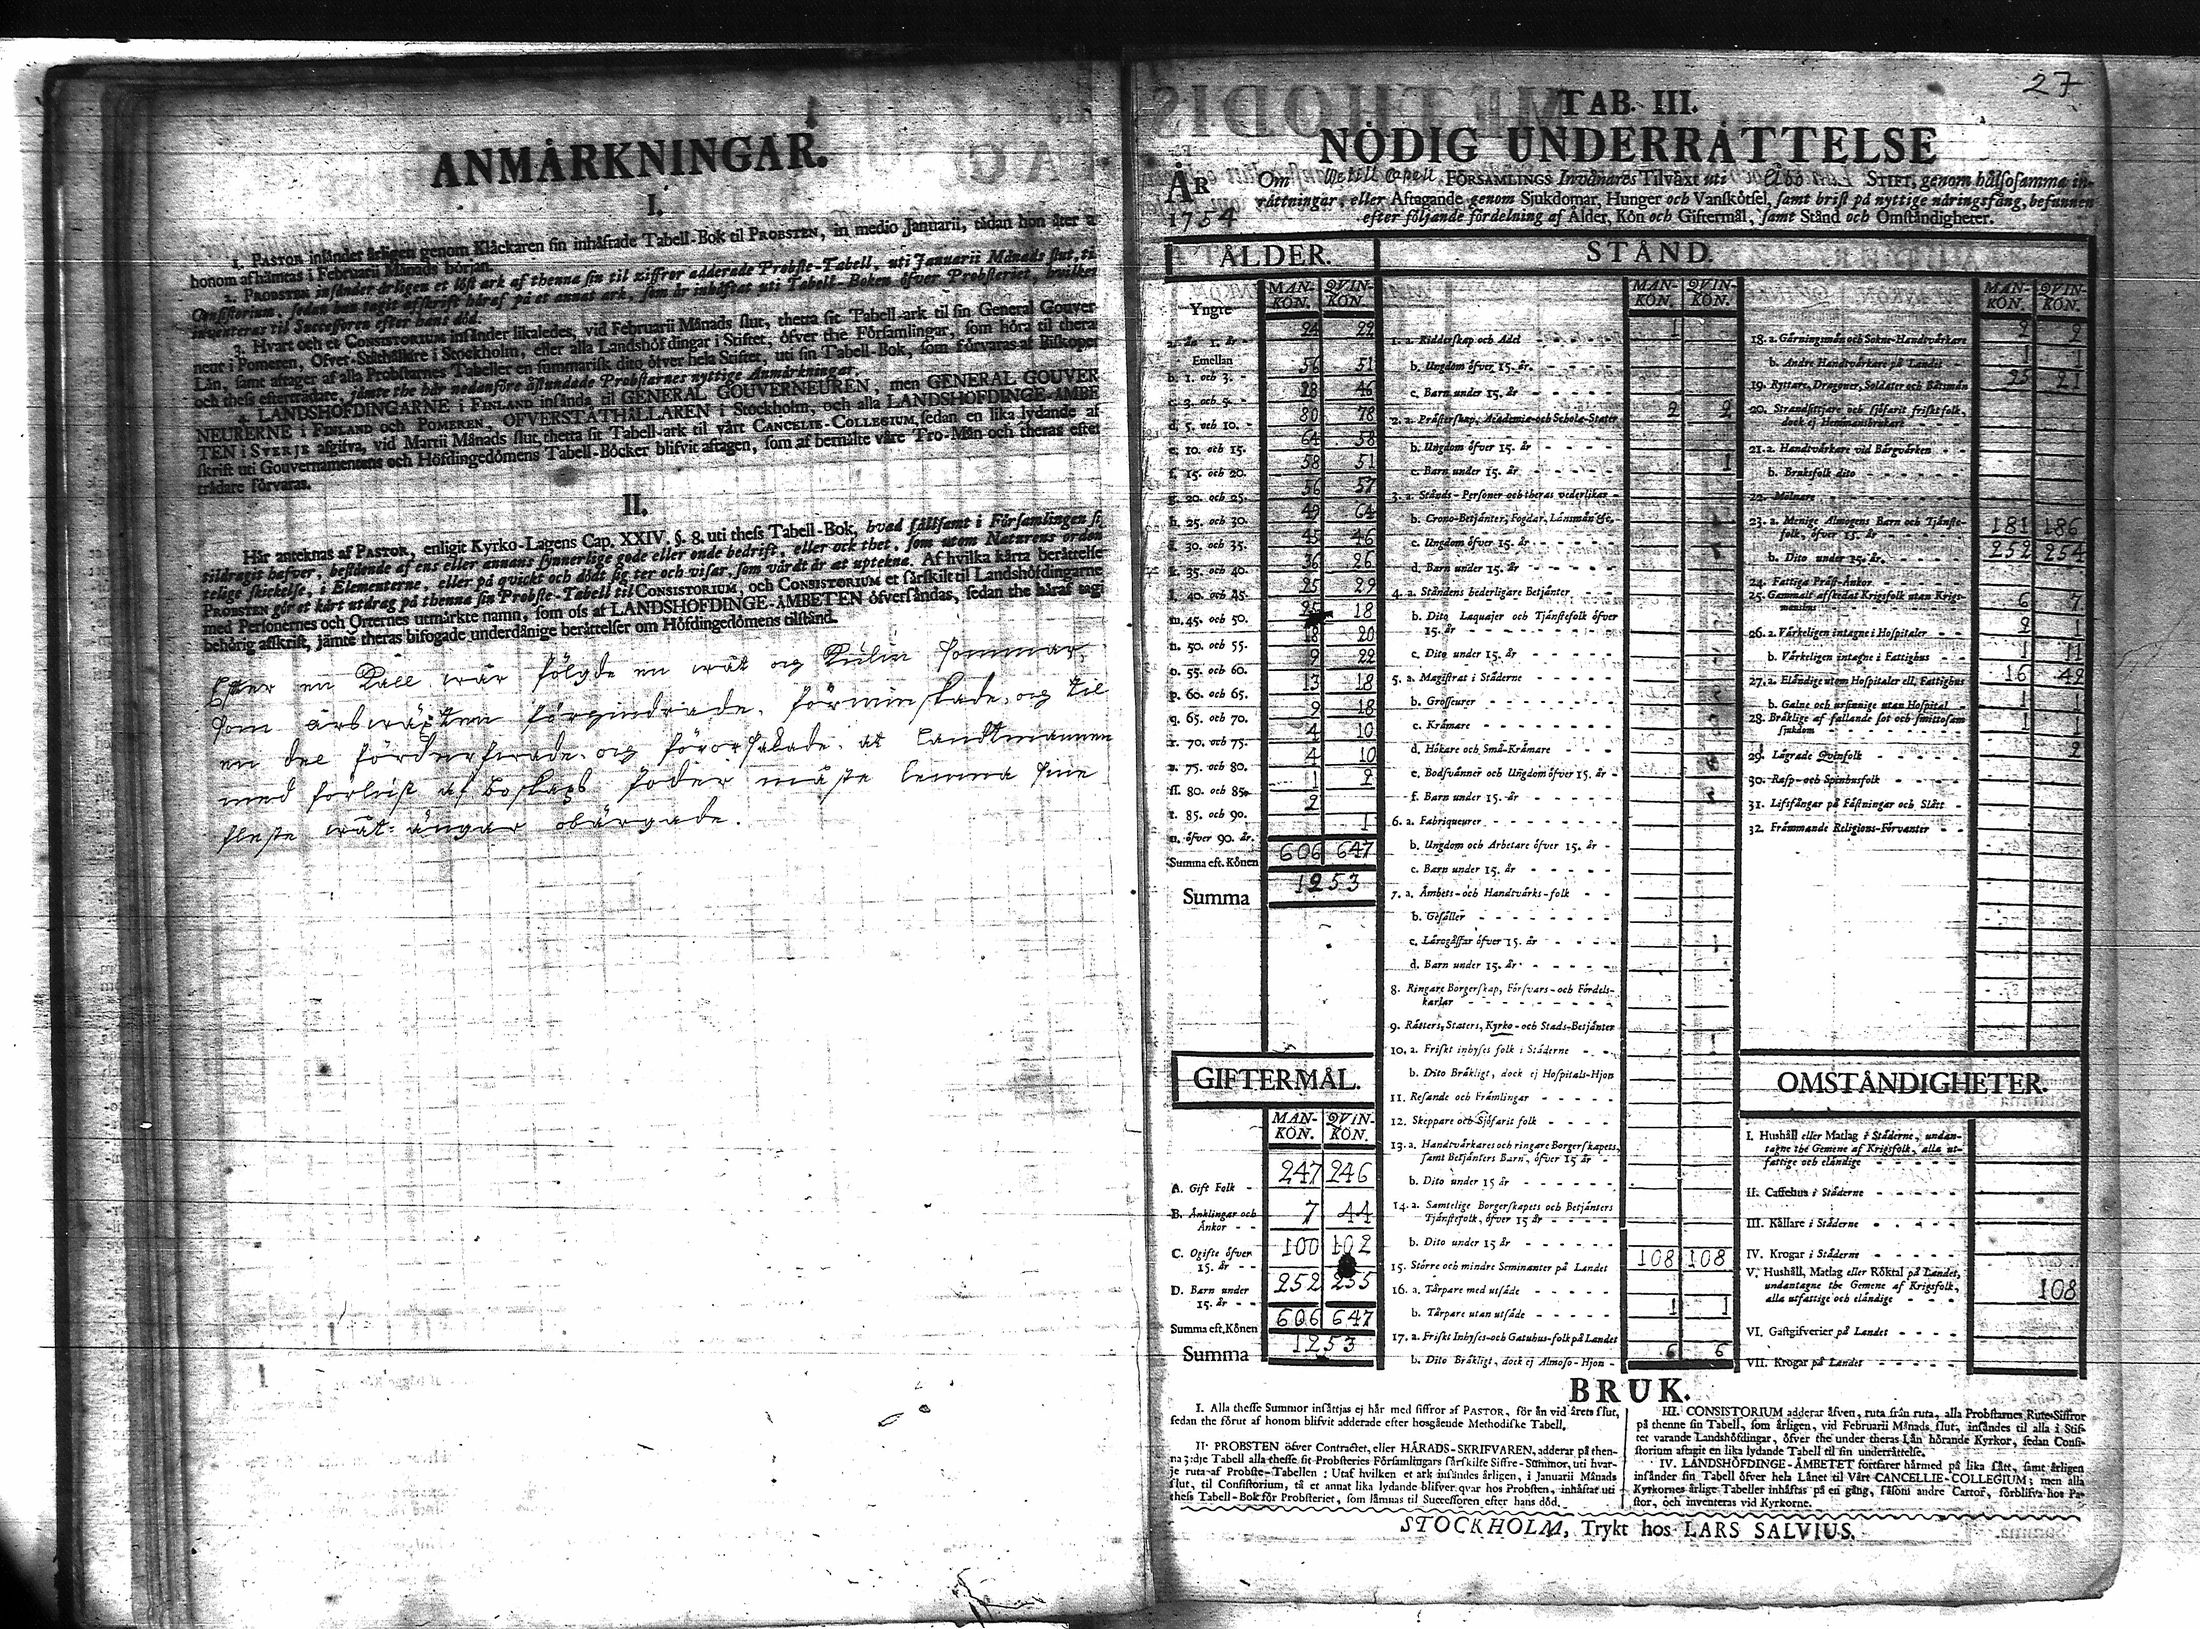 ANMÅRKNINGAR.
I.
1. PASTOR insånder årligen genom Klåckaren sin inhåftade Tabell-Bok til PROBSTEN, in medio Januarii, tådan hon åter a
honom afhåmtas i Februarii Månads början.
2. PROBSTEN insånder årligen et löst ark af thenna sin til ziffror adderade Probste-Tabell, uti Januarii Månads slut, til
Consistorium, sedan han tagit afskrift håraf på et annat ark, som år inhåftat uti Tabell-Boken öfver Probsteriet, hvilket
inventeras til Successoren efter hans död.
3. Hvart och et CONSISTORIUM insånder likaledes, vid Februarii Månads slut, thetta sit Tabell-ark til sin General Gouver-
neur i Pomeren, Öfver-Ståthållare i Stockholm, eller alla Landshöfdingar i Stiftet, öfver the Församlingar, som höra til thera
Lån, samt aftager af alla Probstarnes Tabeller en summarisk dito öfver hela Stiftet, uti sin Tabell-Bok, som förvaras af Biskopen
och thess eftertrådare, jåmte the hår nedanföre åstundade Probstarnes nyttige Anmårkningar.
4. LANDSHÖFDINGARNE i FINLAND insånda til GENERAL GOUVERNEUREN, men GENERAL GOUVER-
NEURERNE i FINLAND och POMEREN, ÖFVERSTÅTHÅLLAREN i Stockholm, och alla LANDSHÖFDINGE-ÅMBE
TEN i SVERJE afgifva, vid Martii Månads slut, thetta sit Tabell-ark til vårt CANCELIE-COLLEGIUM, sedan en lika lydande af
skrift uti Gouvernamentens och Höfdingedömens Tabell-Böcker blifvit aftagen, som af bemålte våre Tro-Mån och theras efter
trådare förvaras.
II.
Hår anteknas af PASTOR, enligit Kyrko-Lagens Cap. XXIV. §. 8. uti thess Tabell-Bok, hvad sållsamt i Församlingen si
tildragit hafver, bestående af ens eller annans synnerlige gode eller onde bedrift, eller ock thet, som utom Naturens orden
telige skickelse, i Elementerne, eller på qvickt och dödt sig ter och visar, som vårdt år at uptekna. Af hvilka kårta beråttelse
PROBSTEN gör et kårt utdrag på thenna sin Probste-Tabell til CONSISTORIUM, och CONSISTORIUM et sårskilt til Landshöfdingarne
med Personernes och Orternes utmårkte namn, som oss af LANDSHÖFDINGE-ÅMBETEN öfversåndas, sedan the håraf tagi
behörig afskrift, jåmte theras bifogade underdånige beråttelser om Höfdingedömens tilstånd.
Efter en kall wår fölgde en wåt og kulin sommar,
som årswäxten förhindrade, förminskade, og til
en del förderfwade, og förorsakade, at Landtmannen
med förlust af boskaps foder måste lemna sine
fleste wåt-ängar obärgade.
27
TAB. III.
NÖDIG UNDERRÅTTELSE
ÅR 1754
Om Wekill Capell FÖRSAMLINGS Invånares Tilvåxt uti Åbo STIFT, genom hålsosamma in-
råttningar, eller Aftagande genom Sjukdomar, Hunger och Vanskötsel, samt brist på nyttige nåringsfång, befunnen
efter följande fördelning af Ålder, Kön och Giftermål, samt Stånd och Omståndigheter.
ÅLDER.
MAN-KÖN. QVIN-KÖN.
Yngre
a. ån 1. år - 24 22
Emellan
b. 1. och 3. - 56 51
c. 3. och 5. - 28 46
d. 5. och 10. - 80 78
e. 10. och 15. 64 58
f. 15. och 20. 58 51
g. 20. och 25. 56 57
h. 25. och 30. 49 64
i. 30. och 35. 45 46
k. 35. och 40. 36 26
l. 40. och 45. 25 29
m. 45. och 50. 18
n. 50. och 55. 18 20
o. 55. och 60. 9 22
p. 60. och 65. 13 18
q. 65. och 70. 9 18
r. 70. och 75. 4 10
s. 75. och 80. 4 10
ss. 80. och 85. 1 2
t. 85. och 90. 2
u. öfver 90. år. 1
Summa eft. Könen 606 647
Summa 1253
GIFTERMÅL.
MAN-KÖN. QVIN-KÖN.
A. Gift Folk - 247 246
B. Ånklingar och Ånkor - - 7 44
C. Ogifte öfver 15. år - - 100 102
D. Barn under 15. år - - 252 255
Summa eft. Könen 606 647
Summa 1253
STÅND.
MAN-KÖN. QVIN-KÖN.
1. a. Ridderskap och Adel - - 1
b. Ungdom öfver 15. år.
c. Barn under 15. år
2. a. Pråsterskap, Academiæ och Scholæ-Stater 2 2
b. Ungdom öfver 15. år
c. Barn under 15. år 1
3. a. Stånds-Personer och theras vederlikar -
b. Crono-Betjånter, Fogdar, Lånsmån &c.
c. Ungdom öfver 15. år
d. Barn under 15. år
4. a. Ståndens bederligare Betjånter
b. Dito Laquajer och Tjånstefolk öfver
15. år
c. Dito under 15. år
5. a. Magistrat i Ståderne
b. Grosseurer
c. Kråmare
d. Hökare och Små-Kråmare
e. Bodsvånner och Ungdom öfver 15. år -
f. Barn under 15. år
6. a. Fabriqueurer
b. Ungdom och Arbetare öfver 15. år -
c. Barn under 15. år
7. a. Åmbets-och Handtvårks-folk
b. Gesåller
c. Lårogåssar öfver 15. år
d. Barn under 15. år
8. Ringare Borgerskap, Försvars-och Fördels-
karlar
9. Råtters, Staters, Kyrko-och Stads-Betjånter
10. a. Friskt inhyses folk i Ståderne
b. Dito Bråkligt, dock ej Hospitals-Hjon
11. Resande och Fråmlingar
12. Skeppare och Sjöfarit folk
13. a. Handtvårkares och ringare Borgerskapets,
samt Betjånters Barn, öfver 15 år
b. Dito under 15 år
14. a. Samtelige Borgerskapets och Betjånters
Tjånstefolk, öfver 15 år
b. Dito under 15 år
15. Större och mindre Seminanter på Landet 108 108
16. a. Tårpare med utsåde
b. Tårpare utan utsåde 1 1
17. a. Friskt Inhyses-och Gatuhus-folk på Landet
b. Dito Bråkligt, dock ej Almoso-Hjon - 6 6
MAN-KÖN. QVIN-KÖN.
18. a. Gårningsmån och Sokne-Handtvårkare 2 2
b. Andre Handtvårkare på Landet 1 1
19. Ryttare, Dragoner, Soldater och Båtsmån 25 21
20. Strandsittjare och sjöfarit friskt folk,
dock ej Hemmansbrukare
21. a. Handtvårkare vid Bårgvårken
b. Bruksfolk dito
22. Mölnare
23. a. Menige Almogens Barn och Tjånste-
folk, öfver 15. år 181 186
b. Dito under 15. år. 252 254
24. Fattiga Pråst-Ånkor
25. Gammalt afskedat Krigsfolk utan Krigs-
manshus 6 7
26. a. Vårkeligen intagne i Hospitaler 2 1
b. Vårkeligen intagne i Fattighus 1 11
27. a. Elåndige utom Hospitaler ell. Fattighus 16 42
b. Galne och ursinnige utan Hospital 1 1
28. Bråklige af fallande sot och smittosam
sjukdom 1 1
29. Lågrade Qvinfolk 2
30. Rasp-och Spinhusfolk
31. Lifsfångar på Fåstningar och Slått
32. Fråmmande Religions-Förvanter
OMSTÅNDIGHETER.
I. Hushåll eller Matlag i Ståderne, undan-
tagne the Gemene af Krigsfolk, alla ut-
fattige och elåndige
II. Caffehus i Ståderne
III. Kållare i Ståderne
IV. Krogar i Ståderne
V. Hushåll, Matlag eller Röktal på Landet,
undantagne the Gemene af Krigsfolk,
alla utfattige och elåndige 108
VI. Gåstgifverier på Landet
VII. Krogar på Landet
BRUK.
I. Alla thesse Summor insåttjas ej hår med siffror af PASTOR, för ån vid årets slut,
sedan the förut af honom blifvit adderade efter hosgående Methodiske Tabell.
II. PROBSTEN öfver Contractet, eller HÅRADS-SKRIFVAREN, adderar på then-
na 3:dje Tabell alla thesse sit Probsteries Församlingars sårskilte Siffre-Summor, uti hvar-
je ruta af Probste-Tabellen: Utaf hvilken et ark insåndes årligen, i Januarii Månads
slut, til Consistorium, tå et annat lika lydande blifver qvar hos Probsten, inhåftat uti
thess Tabell-Bok för Probsteriet, som låmnas til Successoren efter hans död.
III. CONSISTORIUM adderar åfven, ruta från ruta, alla Probstarnes Rute-Siffror
på thenne sin Tabell, som årligen, vid Februarii Månads slut, insåndes til alla i Stif-
tet varande Landshöfdingar, öfver the under theras Lån hörande Kyrkor, sedan Consi-
storium aftagit en lika lydande Tabell til sin underråttelse.
IV. LANDSHÖFDINGE-ÅMBETET fortfarer hårmed på lika sått, samt årligen
insånder sin Tabell öfver hela Lånet til Vårt CANCELLIE-COLLEGIUM; men alla
Kyrkornes årlige Tabeller inhåftas på en gång, såsom andre Cartor, förblifva hos Pa-
stor, och inventeras vid Kyrkorne.
STOCKHOLM, Trykt hos LARS SALVIUS.